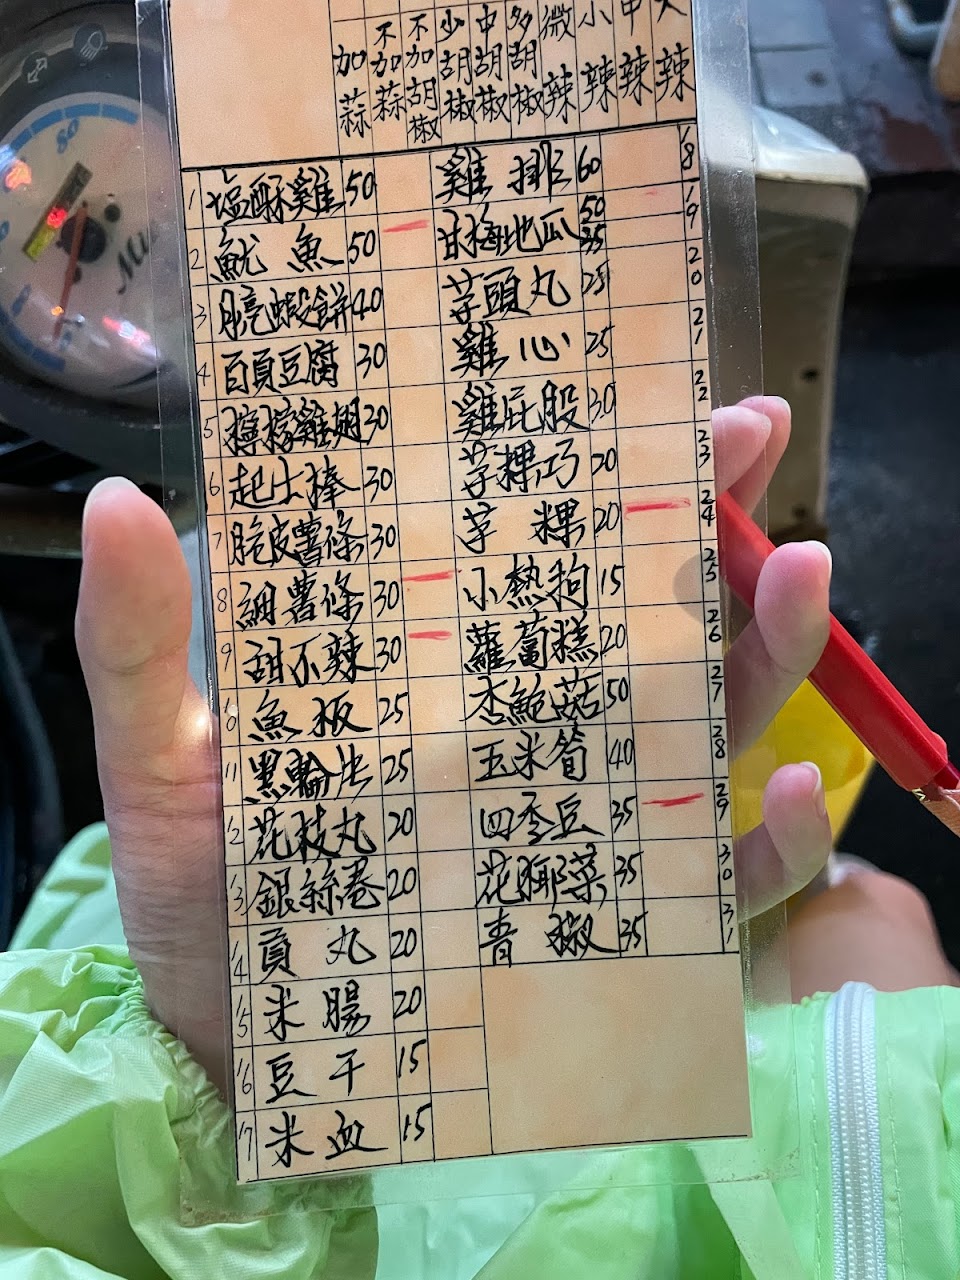 加蒜 不加蒜 不加胡椒 少胡椒 中胡椒 多胡椒 微辣 小辣 中辣 大辣
1 塩酥雞 50 雞排 60 18
2 魷魚 50 甘梅地瓜 50 35 19
3 月亮蝦餅 40 芋頭丸 25 20
4 百頁豆腐 30 雞心 25 21
5 檸檬雞翅 30 雞屁股 30 22
6 起士棒 30 芋粿巧 20 23
7 脆皮薯條 30 芋粿 20 24
8 細薯條 30 小熱狗 15 25
9 甜不辣 30 蘿蔔糕 20 26
10 魚板 25 杏鮑菇 50 27
11 黑輪片 25 玉米筍 40 28
12 花枝丸 20 四季豆 35 29
13 銀絲卷 20 花椰菜 35 30
14 貢丸 20 青椒 35 31
15 米腸 20
16 豆干 15
17 米血 15
80